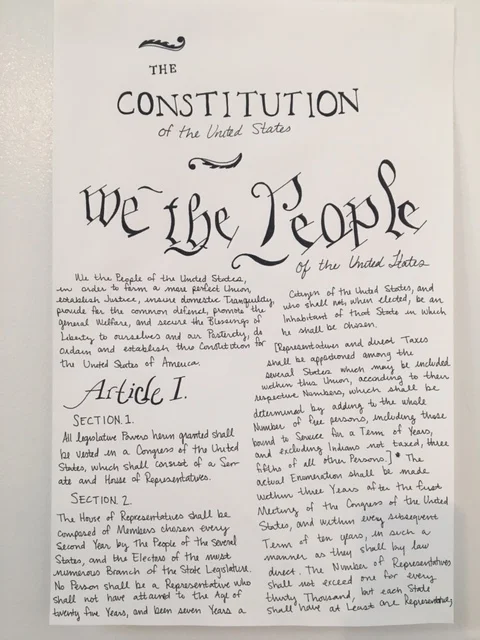 THE
CONSTITUTION
of the United States
We the People
of the United States
We the People of the United States,
in order to form a more perfect Union,
establish Justice, insure domestic Tranquility,
provide for the common defence, promote the
general Welfare, and secure the Blessings of
Liberty to ourselves and our Posterity, do
ordain and establish this Constitution for
the United States of America.
Article I.
SECTION. 1.
All legislative Powers herin granted shall
be vested in a Congress of the United
States, which shall consist of a Sen-
ate and House of Representatives.
SECTION. 2
The House of Representatives shall be
composed of Members chosen every
Second Year by the People of the Several
States, and the Electors of the most
numerous Branch of the State Legislature.
No Person shall be a Representative who
shall not have attained to the Age of
twenty five Years, and been seven Years a
Citizen of the United States, and
who shall not, when elected, be an
Inhabitant of that State in which
he shall be chosen.
[Representatives and direct Taxes
shall be apportioned among the
several States which may be included
within this Union, according to their
respective Numbers, which shall be
determined by adding to the whole
Number of free persons, including those
bound to Service for a Term of Years,
and excluding Indians not taxed, three
fifths of all other Persons.]* The
actual Enumeration shall be made
within three Years after the first
Meeting of the Congress of the United
States, and within every subsequent
Term of ten years, in such a
manner as they shall by law
direct. The Number of Representatives
shall not exceed one for every
thirty Thousand, but each State
shall have at Least one Representative;